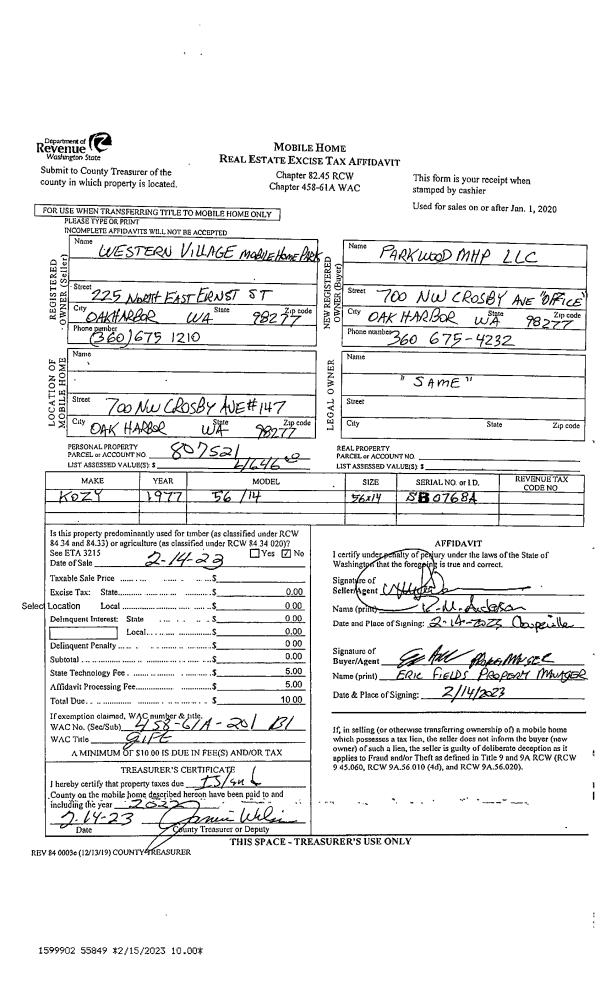 Department of
Revenue
Washington State
Submit to County Treasurer of the
county in which property is located.
MOBILE HOME
REAL ESTATE EXCISE TAX AFFIDAVIT
Chapter 82.45 RCW
Chapter 458-61A WAC
This form is your receipt when
stamped by cashier
Used for sales on or after Jan. 1, 2020
FOR USE WHEN TRANSFERRING TITLE TO MOBILE HOME ONLY
PLEASE TYPE OR PRINT
INCOMPLETE AFFIDAVITS WILL NOT BE ACCEPTED
REGISTERED
OWNER (Seller)
Name
WESTERN VILLAGE MOBILE HOME PARK
Street
225 NORTH EAST ERNST ST
City State Zip code
OAK HARBOR WA 98277
Phone number
(360) 675 1210
NEW REGISTERED
OWNER (Buyer)
Name
PARKWOOD MHP LLC
Street
700 NW CROSBY AVE "OFFICE"
City State Zip code
OAK HARBOR WA 98277
Phone number
360 675-4232
LOCATION OF
MOBILE HOME
Name
Street
700 NW CROSBY AVE #147
City State Zip code
OAK HARBOR WA 98277
LEGAL OWNER
Name
"SAME"
Street
City State Zip code
PERSONAL PROPERTY
PARCEL or ACCOUNT NO. 807521
LIST ASSESSED VALUE(S): $ 4,646
REAL PROPERTY
PARCEL or ACCOUNT NO.
LIST ASSESSED VALUE(S): $
MAKE YEAR MODEL SIZE SERIAL NO. or I.D. REVENUE TAX CODE NO
KOZY 1977 56/14 56x14 0768A
Is this property predominantly used for timber (as classified under RCW
84 34 and 84.33) or agriculture (as classified under RCW 84 34 020)?
See ETA 3215 Yes ✓ No
Date of Sale 2-14-23
Taxable Sale Price $
Excise Tax: State $ 0.00
Select Location Local $ 0 00
Delinquent Interest: State $ 0.00
Local $ 0.00
Delinquent Penalty $ 0.00
Subtotal $ 0.00
State Technology Fee $ 5.00
Affidavit Processing Fee $ 5.00
Total Due $ 10 00
If exemption claimed, WAC number & title.
WAC No. (Sec/Sub) 458-61A-201 B1
WAC Title GIFT
A MINIMUM OF $10.00 IS DUE IN FEE(S) AND/OR TAX
AFFIDAVIT
I certify under penalty of perjury under the laws of the State of
Washington that the foregoing is true and correct.
Signature of
Seller/Agent
Name (print) K. M. Anderson
Date and Place of Signing: 2-14-2023 Coupeville
Signature of
Buyer/Agent PROPERTY MANAGER
Name (print) ERIC FIELDS PROPERTY MANAGER
Date & Place of Signing: 2/14/2023
If, in selling (or otherwise transferring ownership of) a mobile home
which possesses a tax lien, the seller does not inform the buyer (new
owner) of such a lien, the seller is guilty of deliberate deception as it
applies to Fraud and/or Theft as defined in Title 9 and 9A RCW (RCW
9 45.060, RCW 9A.56.010 (4d), and RCW 9A.56.020).
TREASURER'S CERTIFICATE
I hereby certify that property taxes due Island
County on the mobile home described hereon have been paid to and
including the year 2022
2-14-23
Date County Treasurer or Deputy
THIS SPACE - TREASURER'S USE ONLY
REV 84 0003e (12/13/19) COUNTY TREASURER
1599902 55849 *2/15/2023 10.00*